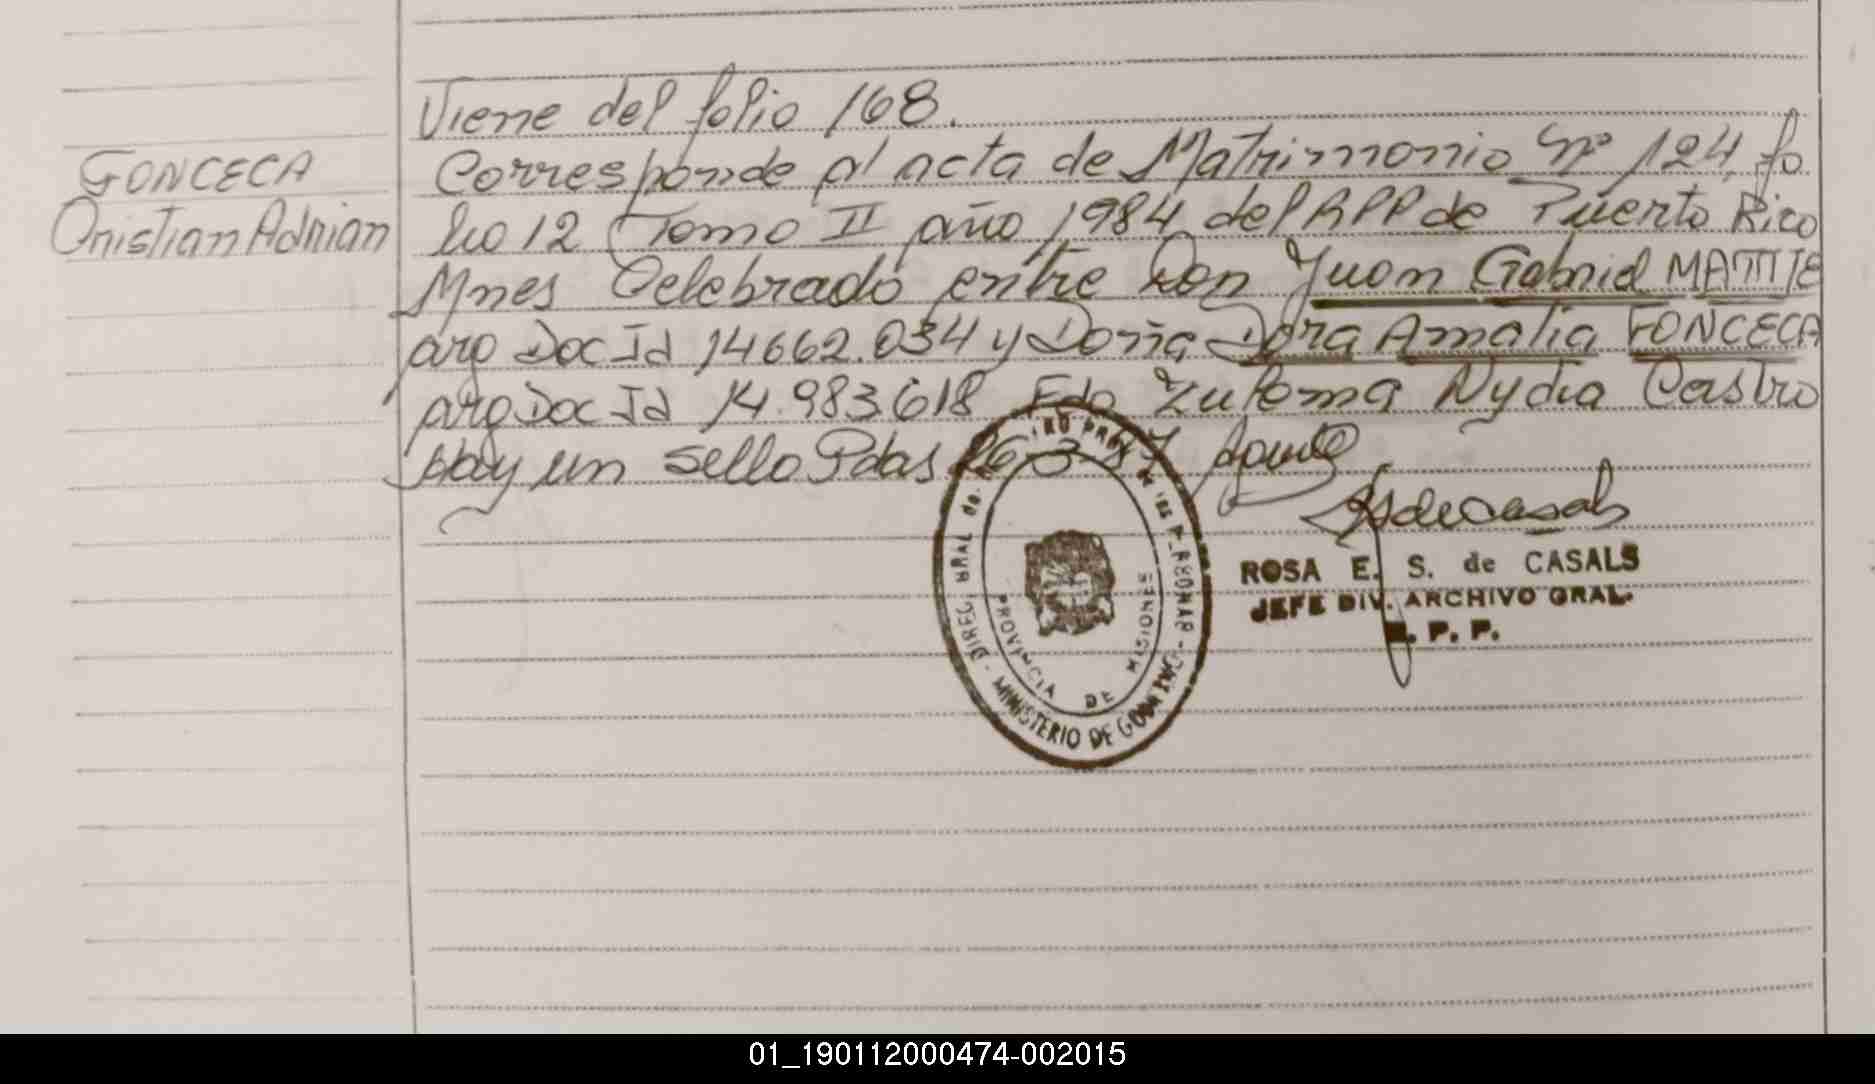 Viene del folio 168.
GONCECA
Cristian Adrian
Corresponde al acta de Matrimonio Nº 124, fo
lio 12 Tomo II año 1984 del RPP de Puerto Rico
Mnes Celebrado entre Don Juan Gabriel MATTJE
arg Doc Id 14662.034 y Doña Dora Amalia FONCECA
arg Doc Id 14.983.618 Fdo Zulema Nydia Castro
Hay un sello Pdas 26-3
DIREC. GRAL de PROV de las PERSONAS - MINISTERIO DE GOBIERNO
PROVINCIA DE MISIONES
ROSA E. S. de CASALS
JEFE DIV. ARCHIVO GRAL.
R. P. P.
01_190112000474-002015